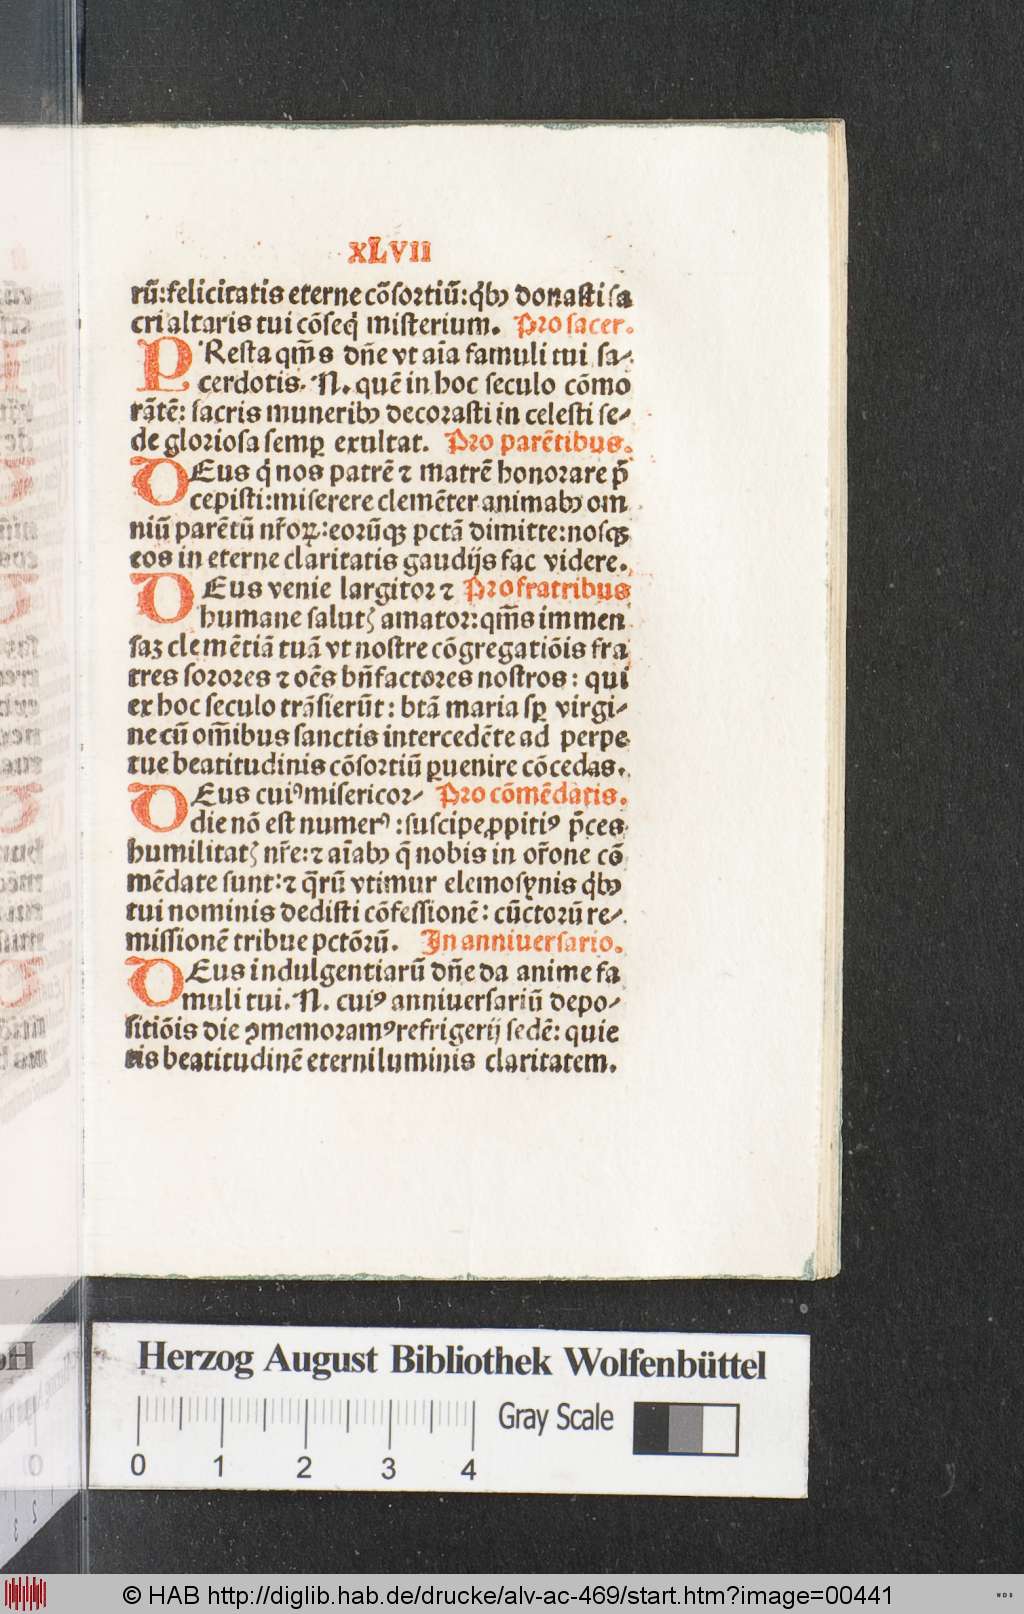 XLVII
rū:felicitatis eterne cōſortiū:q̄bꝫ donaſti ſa
cri altaris tui cōſeq̄ miſterium. Pro ſacer.
PReſta qm̄s dn̄e vt aīa famuli tui ſa⸗
cerdotis. N. quē in hoc ſeculo cōmo
rātē: ſacris muneribꝫ decoraſti in celeſti ſe⸗
de glorioſa ſemꝑ exultat. Pro parētibus.
DEus q̄ nos patrē ⁊ matrē honorare p̄
cepiſti:miſerere clemēter animabꝫ om
niū parētū nr̄oꝝ:eorūqꝫ pctā dimitte:noſqꝫ
eos in eterne claritatis gaudijs fac videre.
DEus venie largitor ⁊ Pro fratribus
humane ſalutꝭ amator:qm̄s immen
ſaꝫ clemētiā tuā vt noſtre cōgregatiōis fra
tres ſorores ⁊ oēs bn̄factores noſtros: qui
ex hoc ſeculo trāſierūt: btā maria ſꝑ virgi⸗
ne cū om̄ibus ſanctis intercedēte ad perpe
tue beatitudinis cōſortiū ꝑuenire cōcedas.
DEus cuiꝰ miſericor⸗ Pro cōmēdatis.
die nō eſt numerꝰ:ſuſcipe ꝓpitiꝰ p̄ces
humilitatꝭ nr̄e:⁊ aīabꝫ q̄ nobis in or̄one cō
mēdate ſunt:⁊ q̄rū vtimur elemoſynis q̄bꝫ
tui nominis dediſti cōfeſſionē: cūctorū re⸗
miſſionē tribue pctōrū. In anniuerſario.
DEus indulgentiarū dn̄e da anime fa
muli tui. N. cuiꝰ anniuerſariū depo⸗
ſitiōis die ꝯmemoramꝰ refrigerij ſedē: quie
tis beatitudinē eterni luminis claritatem.
Herzog August Bibliothek Wolfenbüttel
Gray Scale
0 1 2 3 4
© HAB http://diglib.hab.de/drucke/alv-ac-469/start.htm?image=00441